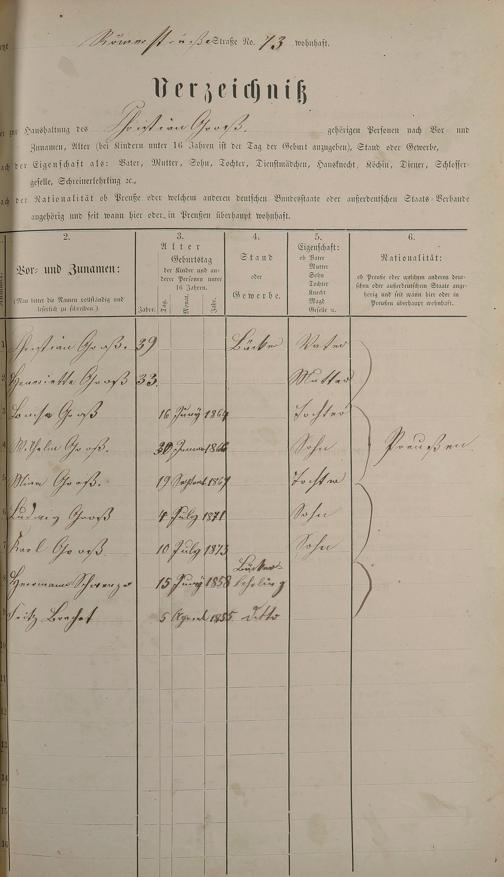 Römerstraße Straße No. 73 wohnhaft.
Verzeichniß
zur Haushaltung des Christian Groß. gehörigen Personen nach Vor- und
Zunamen, Alter (bei Kindern unter 16 Jahren ist der Tag der Geburt anzugeben), Stand oder Gewerbe,
nach der Eigenschaft als: Vater, Mutter, Sohn, Tochter, Dienstmädchen, Hausknecht, Köchin, Diener, Schlosser-
geselle, Schreinerlehrling ꝛc.,
nach der Nationalität ob Preuße oder welchem anderen deutschen Bundesstaate oder außerdeutschen Staats-Verbande
angehörig und seit wann hier oder in Preußen überhaupt wohnhaft.
2. 3. 4. 5. 6.
Vor- und Zunamen:
(Man bittet die Namen vollständig und
leserlich zu schreiben.)
Alter
Geburtstag
der Kinder und an-
derer Personen unter
16 Jahren.
Jahre. Tag. Monat. Jahr.
Stand
oder
Gewerbe.
Eigenschaft:
ob Vater
Mutter
Sohn
Tochter
Knecht
Magd
Geselle ꝛc.
Nationalität:
ob Preuße oder welchem anderen deut-
schen oder außerdeutschen Staate ange-
hörig und seit wann hier oder in
Preußen überhaupt wohnhaft.
1 Christian Groß. 39 Bäcker Vater
2 Henriette Groß 33. Mutter
3 Louise Groß 16 Juny 1864 Tochter
4 Wilhelm Groß. 30 Januar 1866 Sohn Preußen.
5 Mina Groß. 19 Septembr 1869 Tochter
6 Ludwig Groß 4 July 1871 Sohn
7 Karl Groß 10 July 1873 Sohn
8 Herrmann 15 Juny 1858 Bäcker lehrling
9 Fritz 5 April 1855. ditto
10
11
12
13
14
15
16